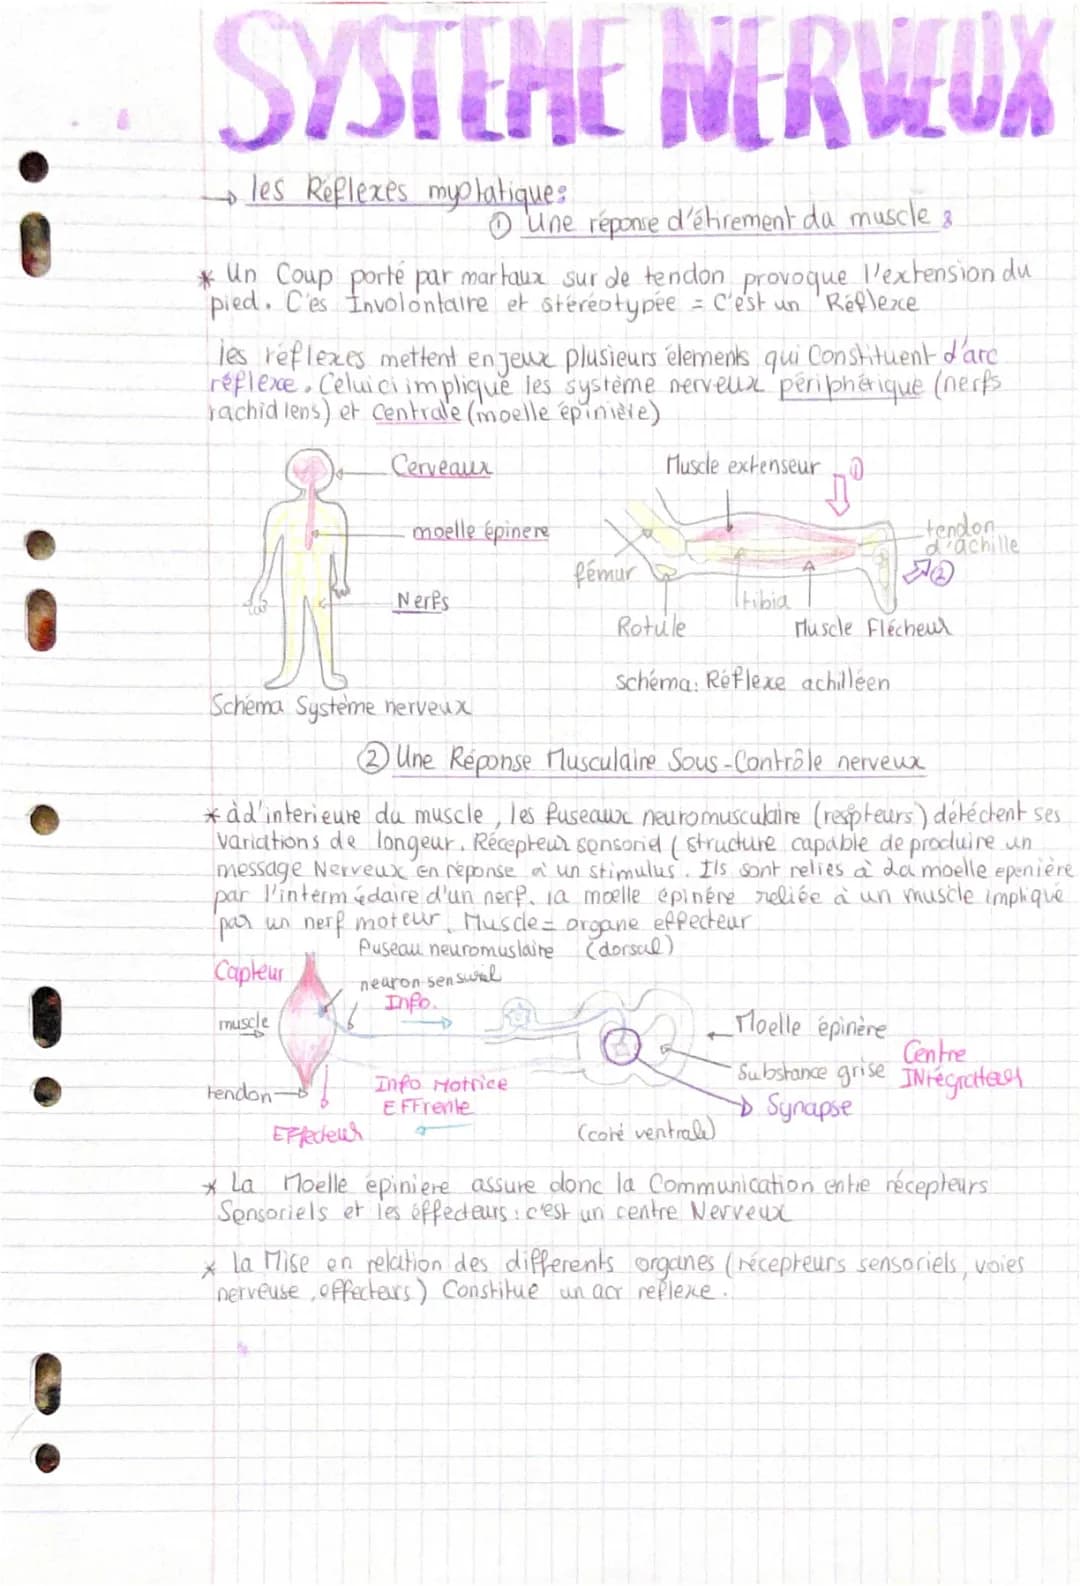 SYSTEME NERVEUX
→ les Réflexes myotatique:
① Une réponse d'étirement du muscle :
* Un Coup porté par martaux sur de tendon provoque l'extension du
pied. C'es Involontaire et stéréotypée = C'est un Réflexe
les réflexes mettent en jeux plusieurs élements qui Constituent d'arc
réflexe. Celui ci implique les système nerveux périphérique (nerfs
rachidiens) et Centrale (moelle épinière)
Cerveaux
moelle épinere
Nerfs
Schéma Système nerveux
Muscle extenseur
①
tendon
d'achille
②
fémur
tibia
Rotule
Muscle Flécheur
schéma: Réflexe achilléen
② Une Réponse Musculaire Sous-Contrôle nerveux
* àd'interieure du muscle, les fuseaux neuromusculaire (respteurs) détéctent ses
variations de longeur. Récepteur sensoriel (structure capable de produire un
message Nerveux en réponse à un stimulus. Ils sont relies à la moelle epenière
par l'intermédaire d'un nerf. la moelle épinére reliée à un muscle impliqué
par un nerf moteur. Muscle = organe effecteur
fuseau neuromuslaire (dorsal)
Capteur
neuron sensuriel
Info.
muscle
Moelle épinère
Centre
INtégratteur
Substance grise
tendon
Info Motrice
EFFrente
Synapse
EFfecteur
(coré ventrale)
* La Moelle épiniere assure donc la Communication entre récepteurs
Sensoriels et les éffecteurs : c'est un centre Nerveux
* la Mise en relation des differents organes (récepteurs sensoriels, voies
nerveuse, effecteurs) Constitue un acr reflexe.